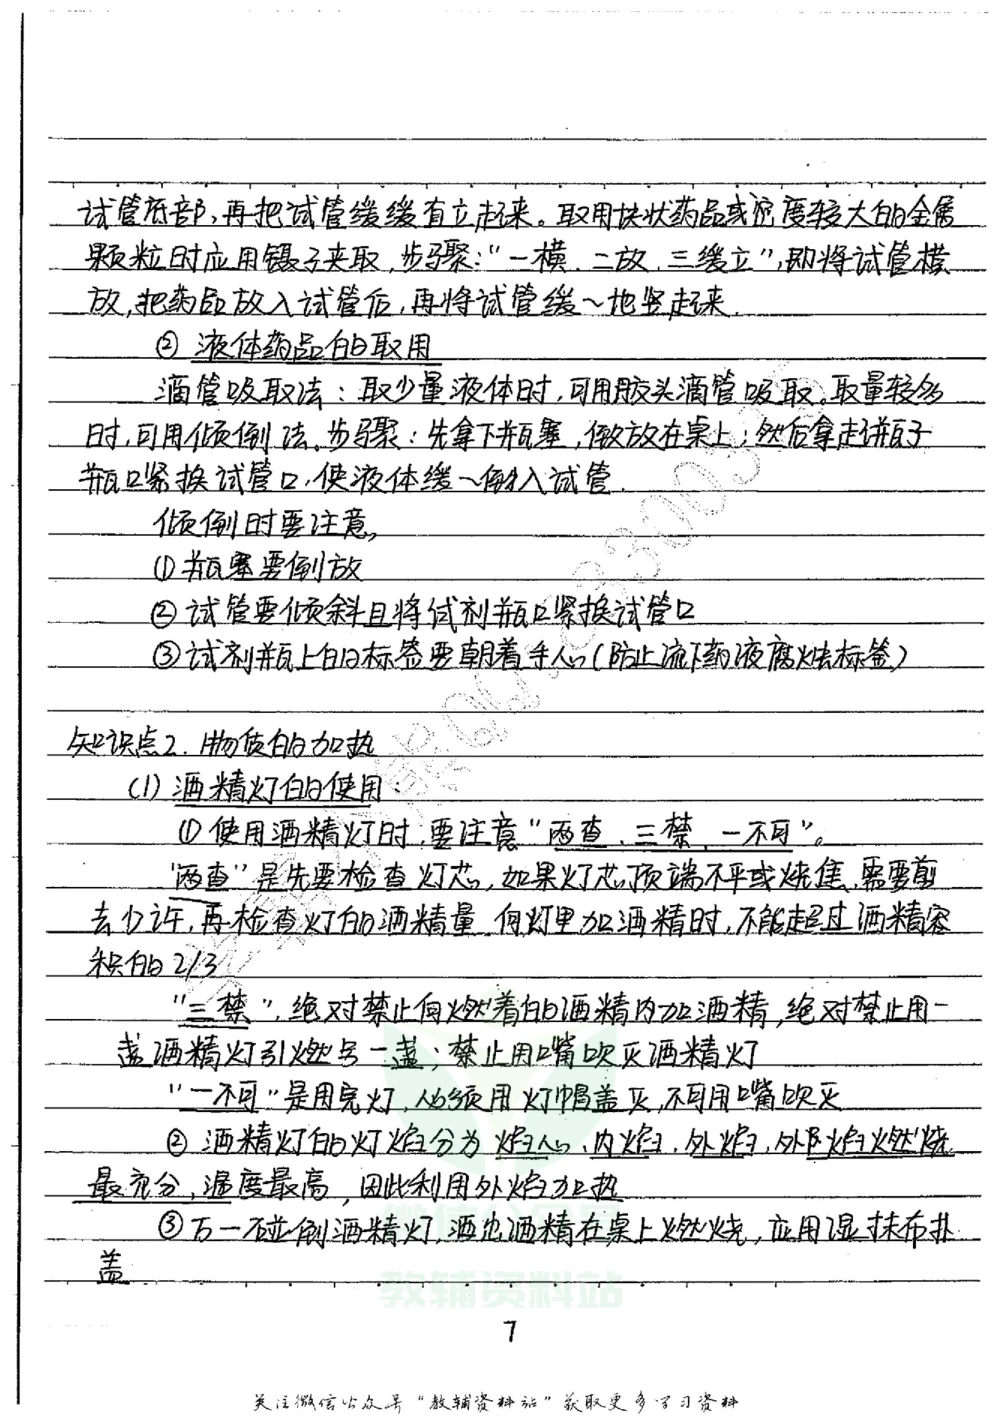 试管底部,再把试管缓缓直立起来。取用块状药品或密度较大的金属
颗粒时应用镊子夹取,步骤:“一横、二放、三缓立”,即将试管横
放,把药品放入试管后,再将试管缓~地竖起来.
② 液体药品的取用
滴管吸取法:取少量液体时,可用胶头滴管吸取。取量较多
时,可用倾倒法。步骤:先拿下瓶塞,倒放在桌上;然后拿起瓶子
瓶口紧挨试管口,使液体缓~倒入试管.
倾倒时要注意,
①瓶塞要倒放
②试管要倾斜且将试剂瓶口紧挨试管口
③试剂瓶上的标签要朝着手心(防止流下药液腐蚀标签)
知识点2. 物质的加热
(1)酒精灯的使用:
①使用酒精灯时,要注意“两查、三禁、一不可”。
“两查”是先要检查灯芯,如果灯芯顶端不平或烧焦,需要剪
去少许,再检查灯的酒精量,向灯里加酒精时,不能超过酒精容
积的2/3
“三禁”,绝对禁止向燃着的酒精内加酒精,绝对禁止用一
盏酒精灯引燃另一盏;禁止用嘴吹灭酒精灯
“一不可”是用完灯,必须用灯帽盖灭,不可用嘴吹灭
②酒精灯的灯焰分为焰心、内焰、外焰,外部焰火燃烧
最充分,温度最高,因此利用外焰加热
③万一碰倒酒精灯,洒出酒精在桌上燃烧,应用湿抹布扑
盖
微信公众号
教辅资料站
7
关注微信公众号“教辅资料站”获取更多学习资料